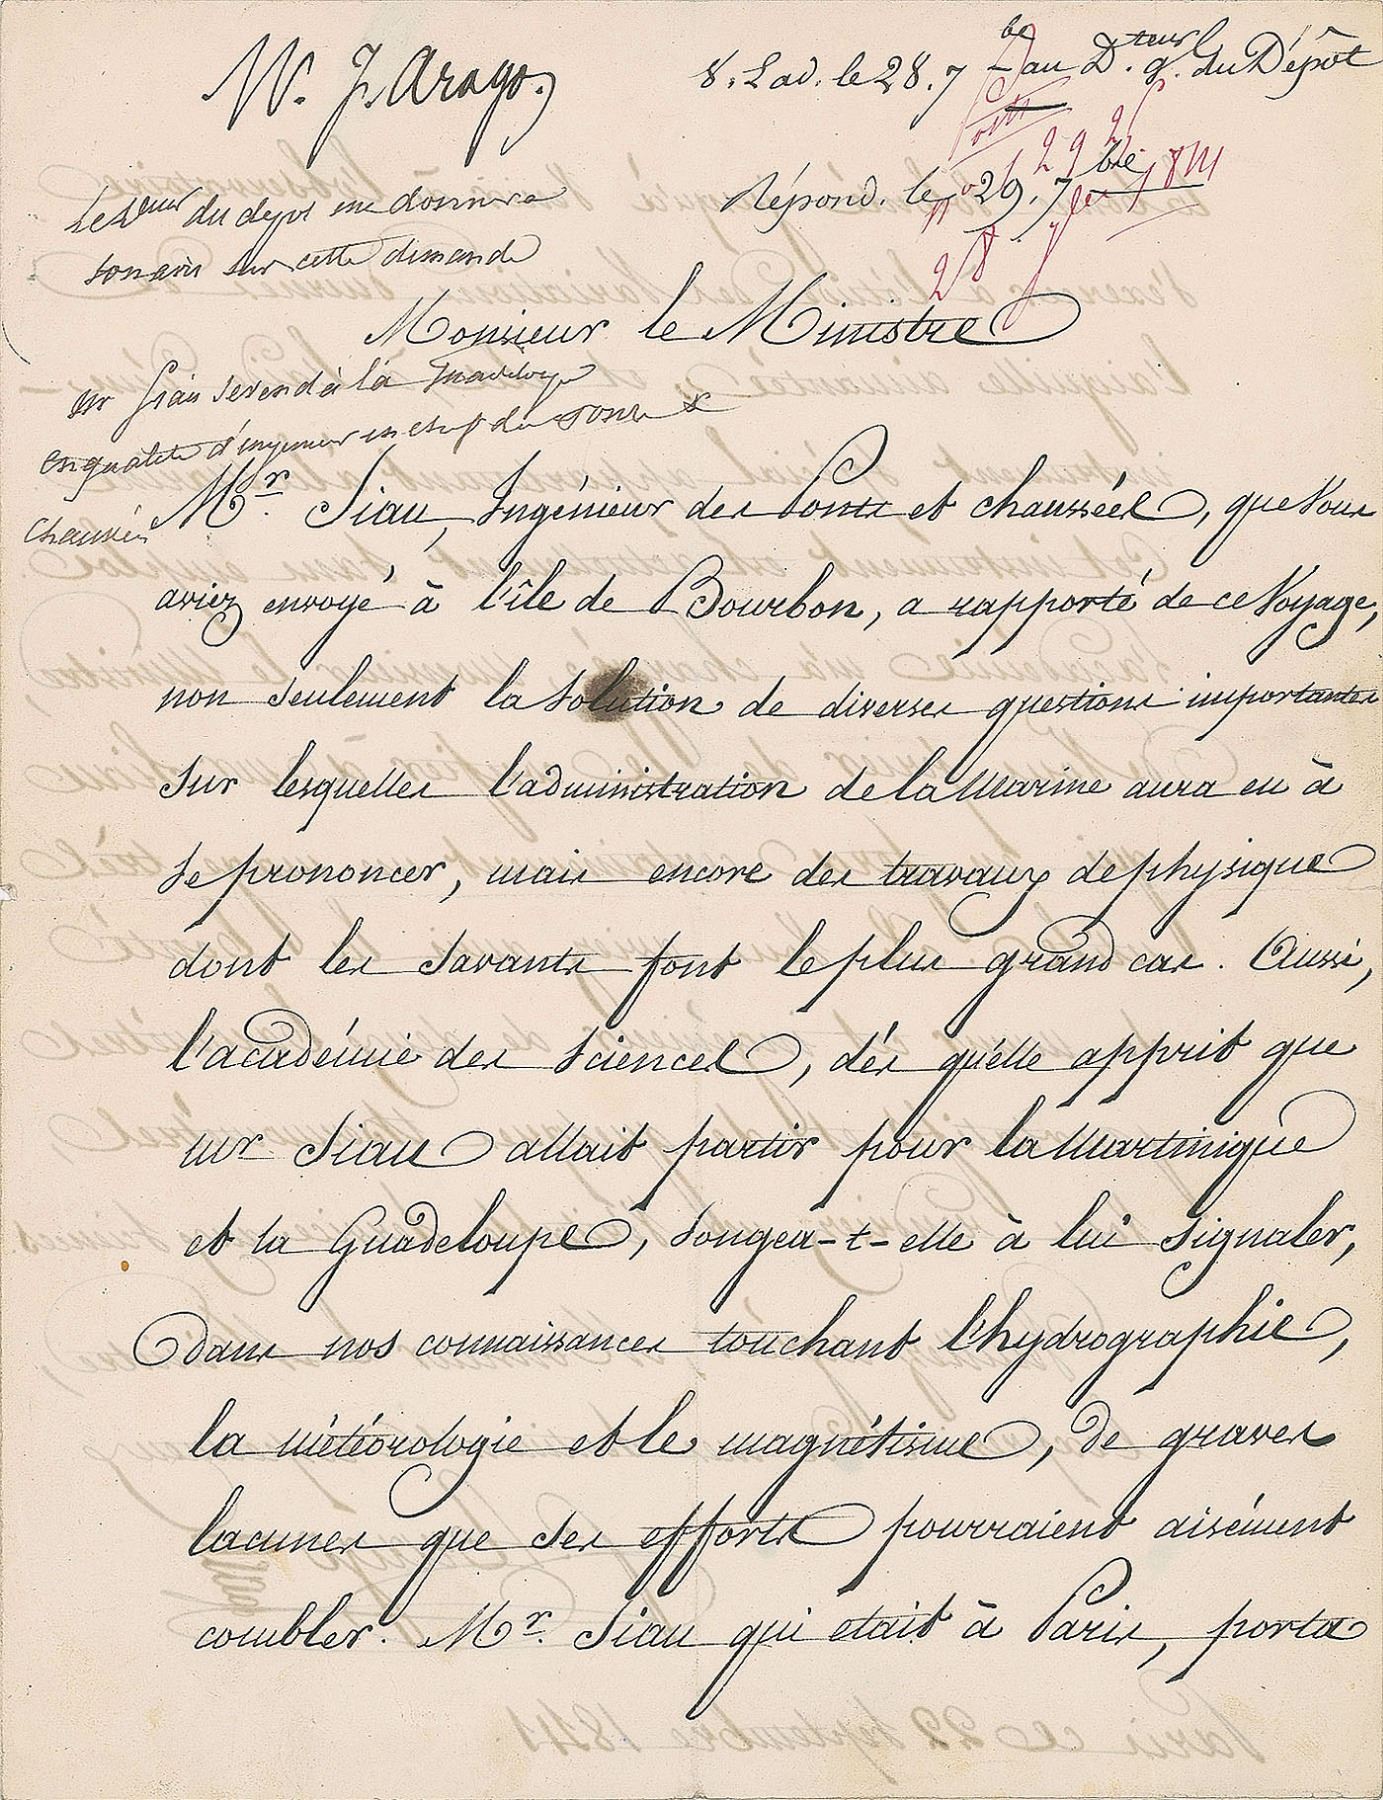 M. F. Arago.
le 28. 7bre au Dteur g. du Dépôt
Répond. le 29. 7bre
Le Dteur du depot me donnera
son avis sur cette demande
Monsieur le Ministre
Mr Siau se rend à la Guadeloupe
en qualité d'ingenieur en chef des Ponts &
chaussées
Mr. Siau, Ingénieur des Ponts et chaussées, que Vous
aviez envoyé à l'île de Bourbon, a rapporté de ce Voyage,
non seulement la solution de diverses questions importantes
sur lesquelles l'administration de la Marine aura eu à
se prononcer, mais encore des travaux de physique
dont les Savants font le plus grand cas. Aussi,
l'académie des Sciences, dés qu'elle apprit que
mr Siau allait partir pour la Martinique
et la Guadeloupe, songea-t-elle à lui signaler,
dans nos connaissances touchant l'hydrographie,
la météorologie et le magnétisme, de graves
lacunes que ses efforts pourraient aisément
combler. Mr. Siau qui etait à Paris, porta